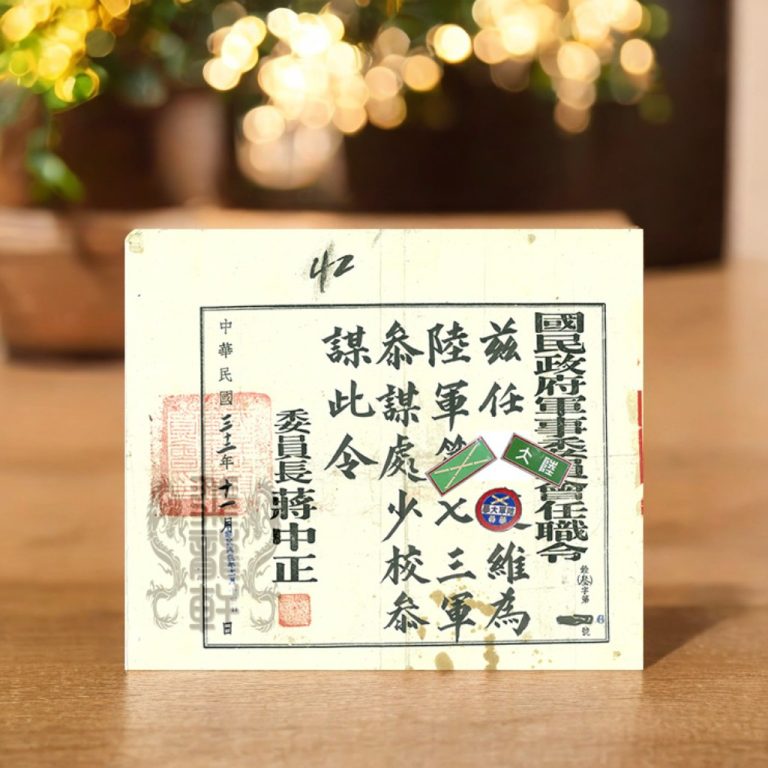 國民政府軍事委員會任職令
字第 號
茲任 維為
陸軍第七三軍
參謀處少校參
謀此令
委員長蔣中正
中華民國三十三年十一月 日
陸大
陸軍大學